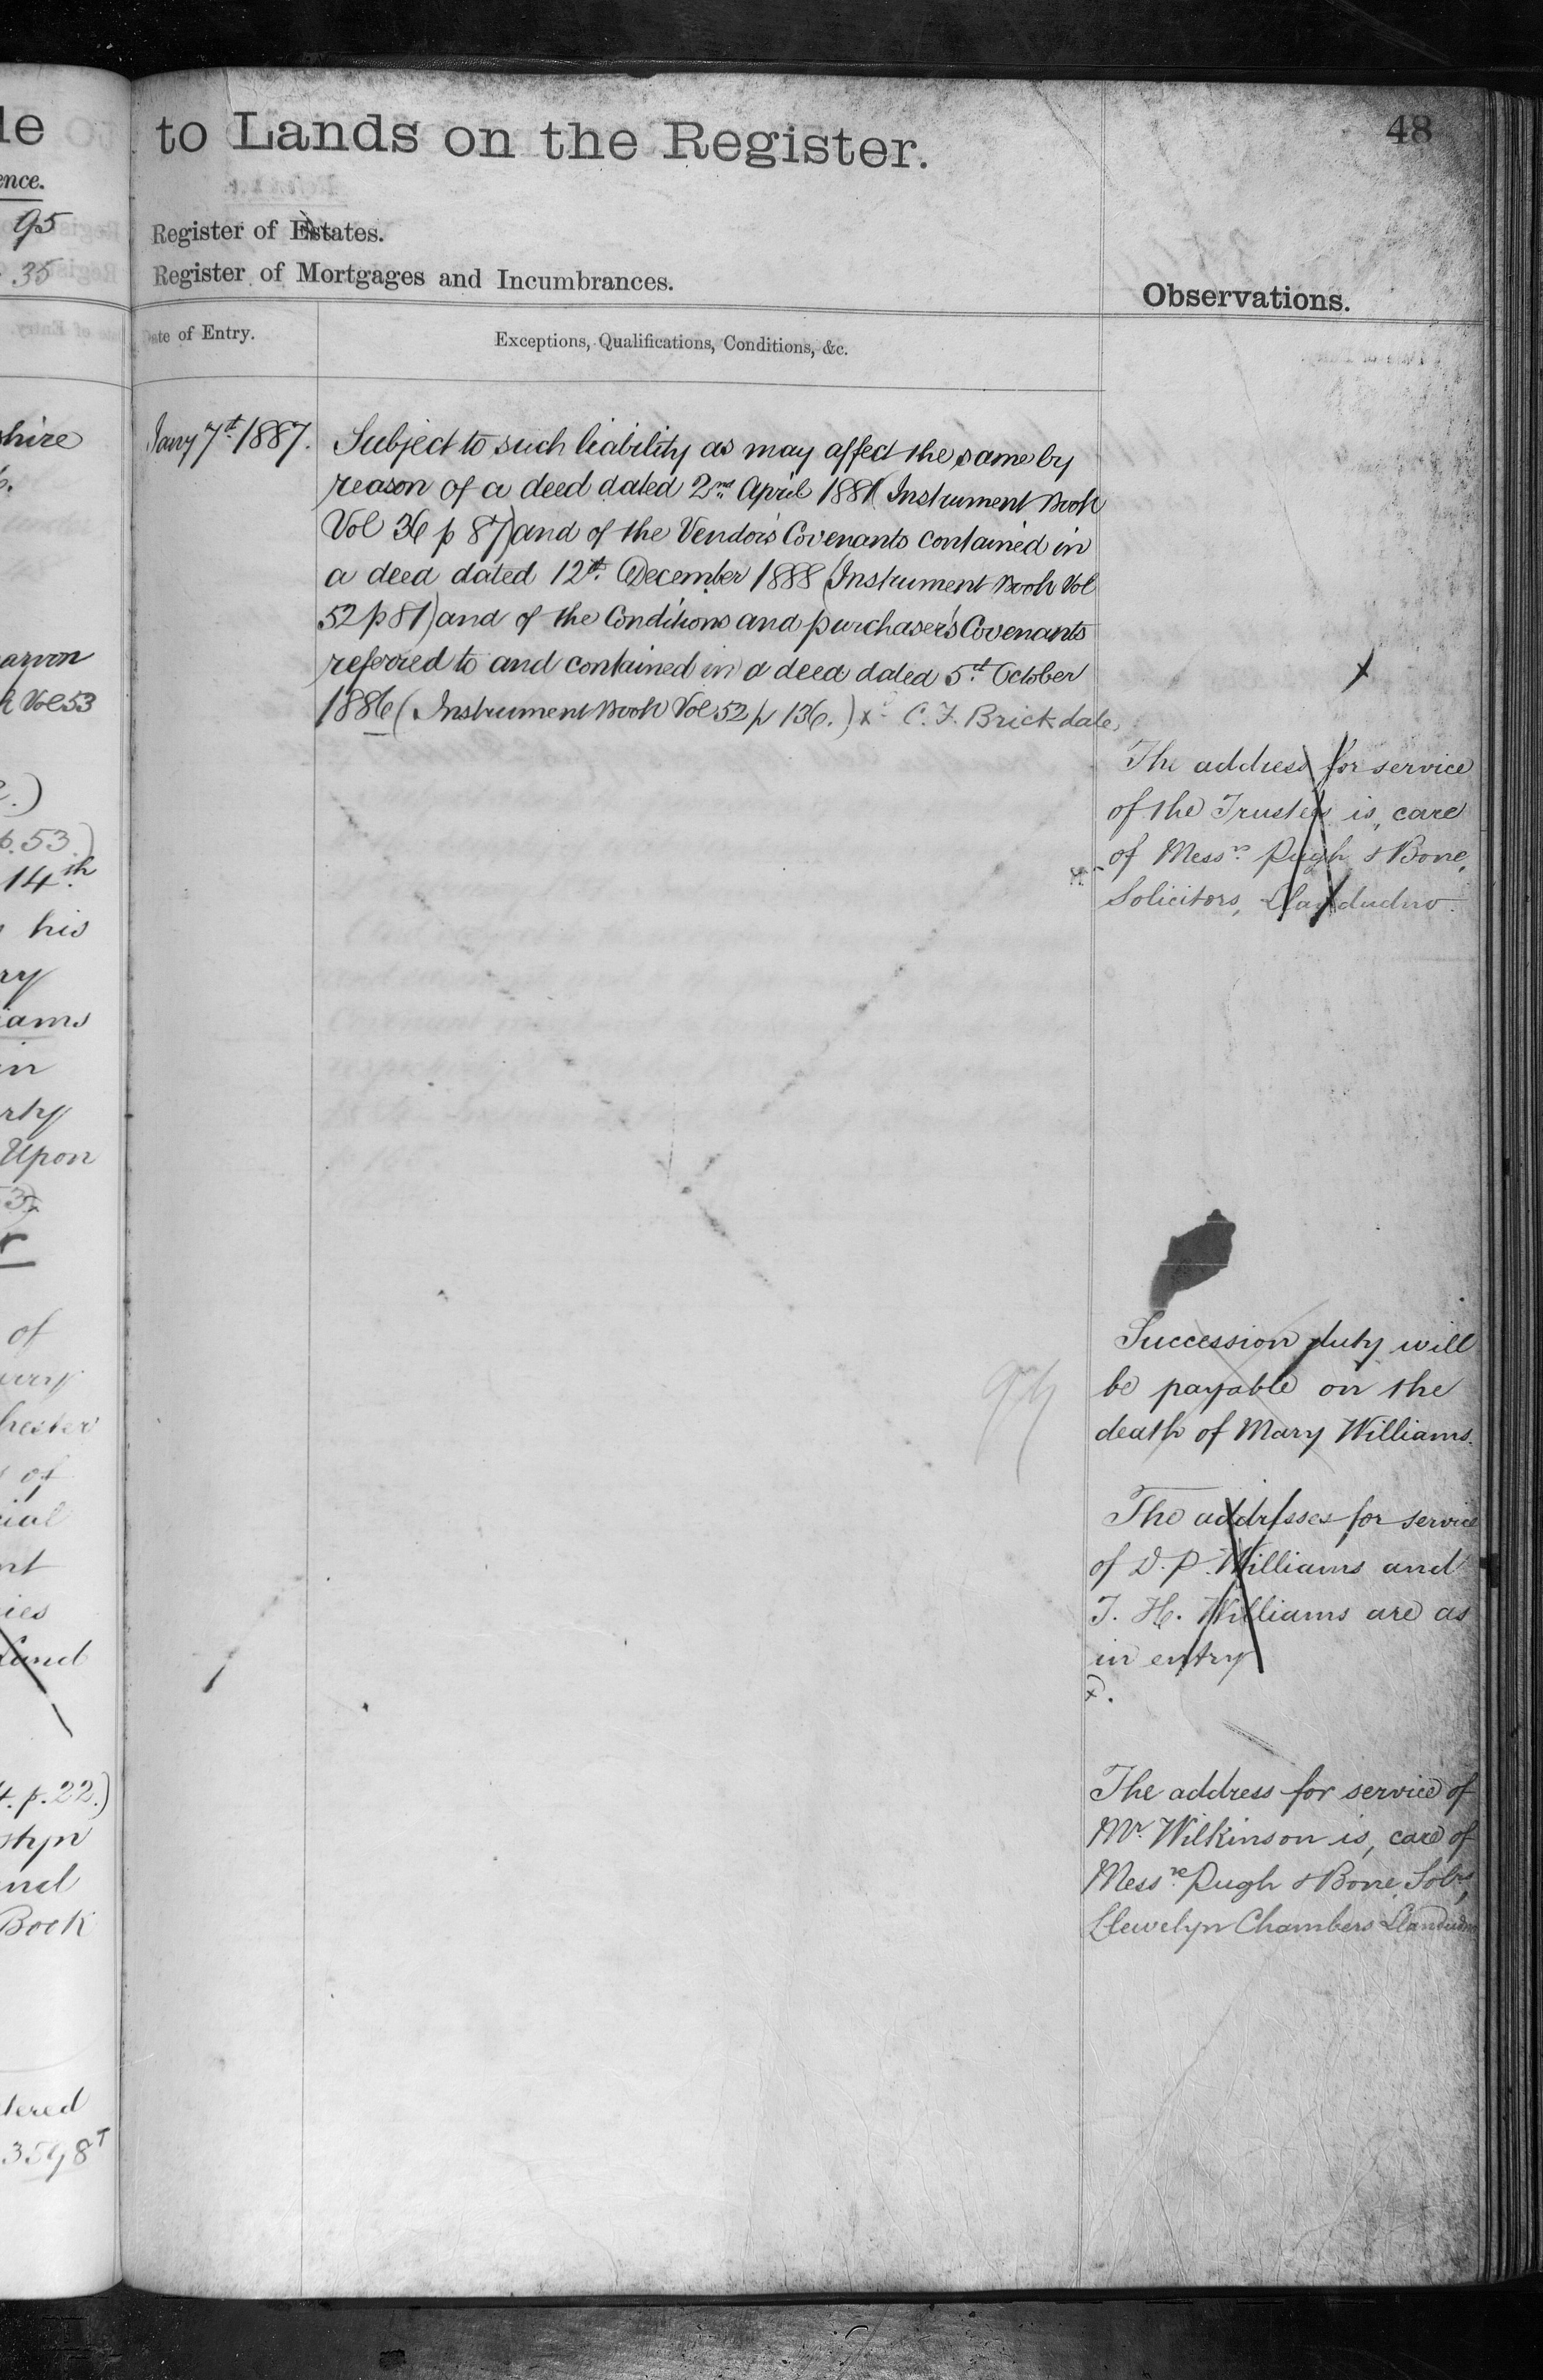 le
ence.
95
35
shire
arvon
k Vol 53
p. 53.)
14th
his
ry
iams
in
rty
Upon
of
hester
of
cial
nt
ies
Land
4. p. 22.)
styn
and
Book
tered
3598T
to Lands on the Register.
48
Register of Estates.
Register of Mortgages and Incumbrances.
Observations.
Date of Entry.
Exceptions, Qualifications, Conditions, &c.
Jany 7th 1887.
Subject to such liability as may affect the same by
reason of a deed dated 2nd April 1881 (Instrument Book
Vol 36 p 87) and of the Vendor's Covenants contained in
a deed dated 12th December 1888 (Instrument Book Vol
52 p 81) and of the Conditions and purchaser's Covenants
referred to and contained in a deed dated 5th October
1886 (Instrument Book Vol 52 p 136.) x C. F. Brickdale,
The address for service
of the Trustees is, care
of Messrs. Pugh & Bone,
Solicitors, Llandudno.
Succession duty will
be payable on the
death of Mary Williams.
The addresses for service
of D. P. Williams and
T. H. Williams are as
in entry
x.
The address for service of
Mr. Wilkinson is, care of
Messrs. Pugh & Bone, Solrs,
Llewelyn Chambers Llandudno